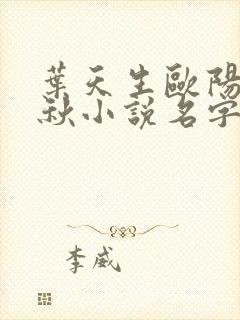 葉天生歐陽
秋小說名字
李威